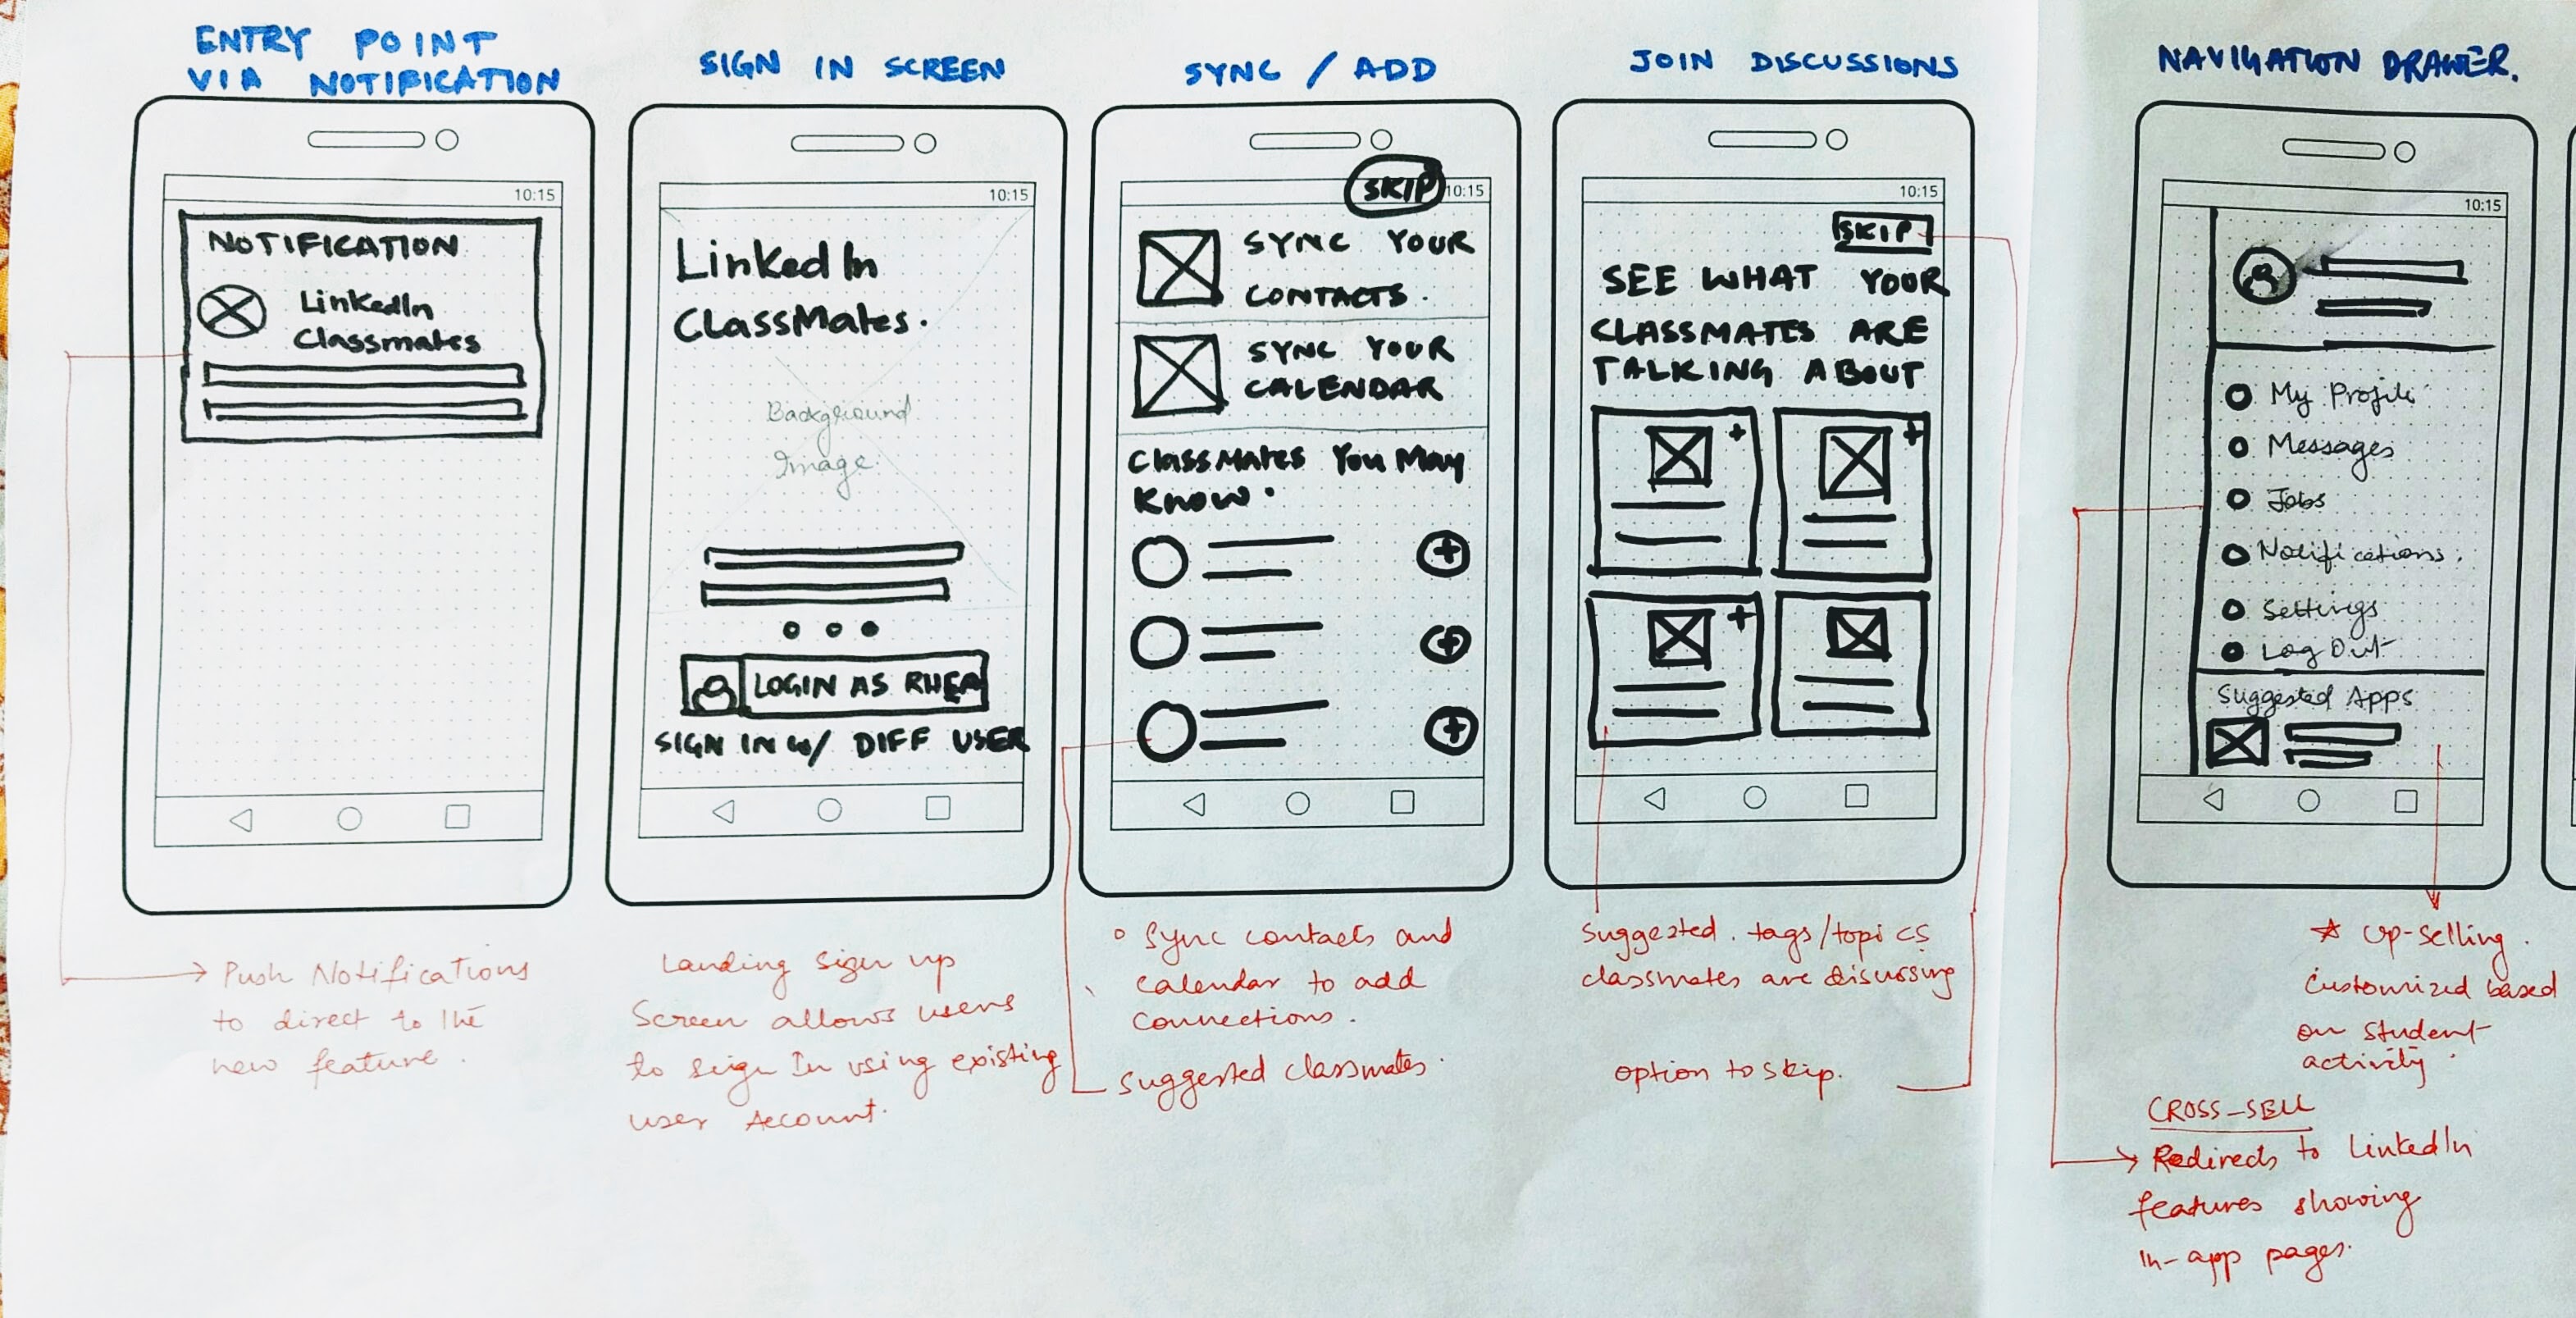 ENTRY POINT
VIA NOTIFICATION
10:15
NOTIFICATION
LinkedIn
Classmates
Push Notifications
to direct to the
new feature.
SIGN IN SCREEN
10:15
LinkedIn
ClassMates.
Background
Image
LOGIN AS RHEA
SIGN IN W/ DIFF USER
Landing sign up
Screen allows users
to sign In using existing
user Account.
SYNC / ADD
SKIP 10:15
SYNC YOUR
CONTACTS.
SYNC YOUR
CALENDAR
ClassMates You May
Know.
Sync contacts and
calendar to add
connections.
Suggested classmates.
JOIN DISCUSSIONS
10:15
SKIP
SEE WHAT YOUR
CLASSMATES ARE
TALKING ABOUT
Suggested. tags/topics
classmates are disussing
option to skip.
NAVIGATION DRAWER.
10:15
My Profile
Messages
Jobs
Notifications.
Settings
Log Out
Suggested Apps
Up-selling.
Customized based
on student
activity.
CROSS-SELL
Redirects to LinkedIn
features showing
in-app pages.